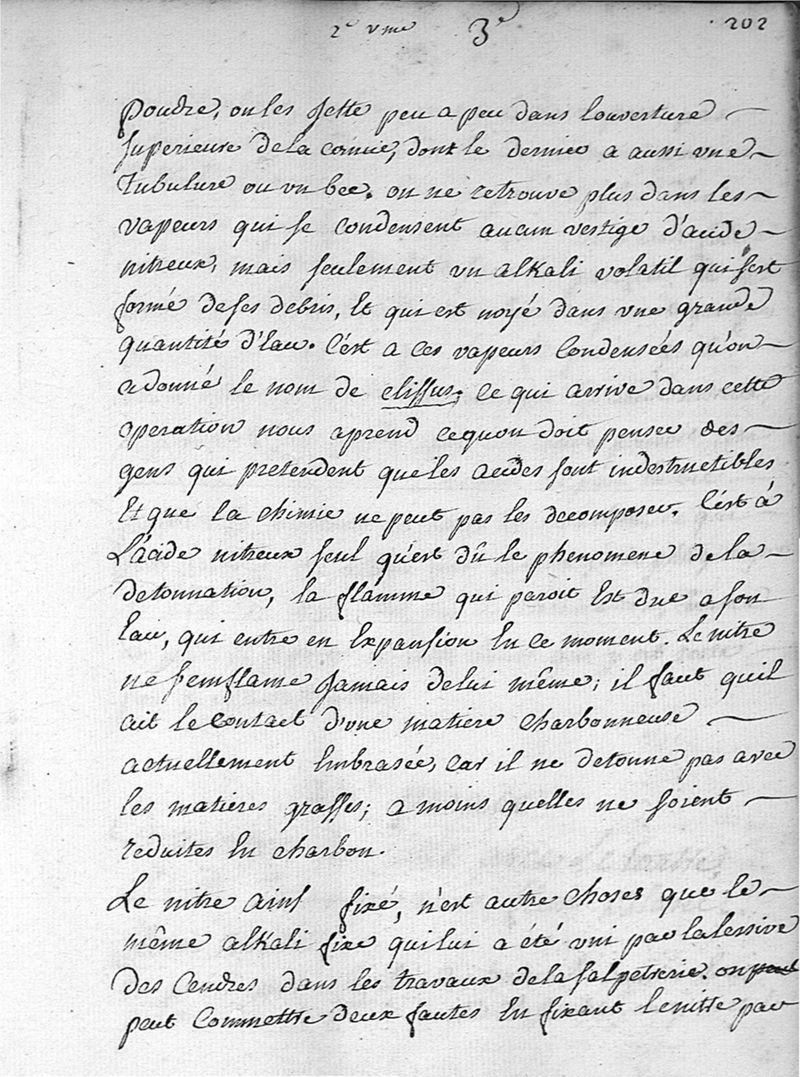 2e vme 3e 202
poudre, on les jette peu a peu dans louverture
superieure de la cornue, dont le dernier a aussi une
tubulure ou un bec. on ne retrouve plus dans les
vapeurs qui se condensent aucun vestige d'acide
nitreux, mais seulement un alkali volatil qui s'est
formé de ses debris, Et qui est noyé dans une grande
quantité d'Eau. C'est a ces vapeurs Condensées qu'on
a donné le nom de clissus. Ce qui arrive dans cette
operation nous aprend cequon doit penser des
gens qui pretendent que les acides sont indestructibles
Et que la chimie ne peut pas les decomposer. C'est à
L'acide nitreux seul qu'est dû le phenomene de la
detonnation, la flamme qui paroit Est due a son
Eau, qui entre en Expansion En ce moment. Le nitre
ne s'emflame Jamais de lui même; il faut quil
ait le contact d'une matiere charbonneuse
actuellement Embrasée, Car il ne detonne pas avec
les matieres grasses; a moins quelles ne soient
reduites En charbon.
Le nitre ainsi fixé, n'est autre choses que le
même alkali fixe qui lui a été uni par la lessive
des Cendres dans les travaux de la salpetrerie. on peut
peut Commettre deux fautes En fixant le nitre par